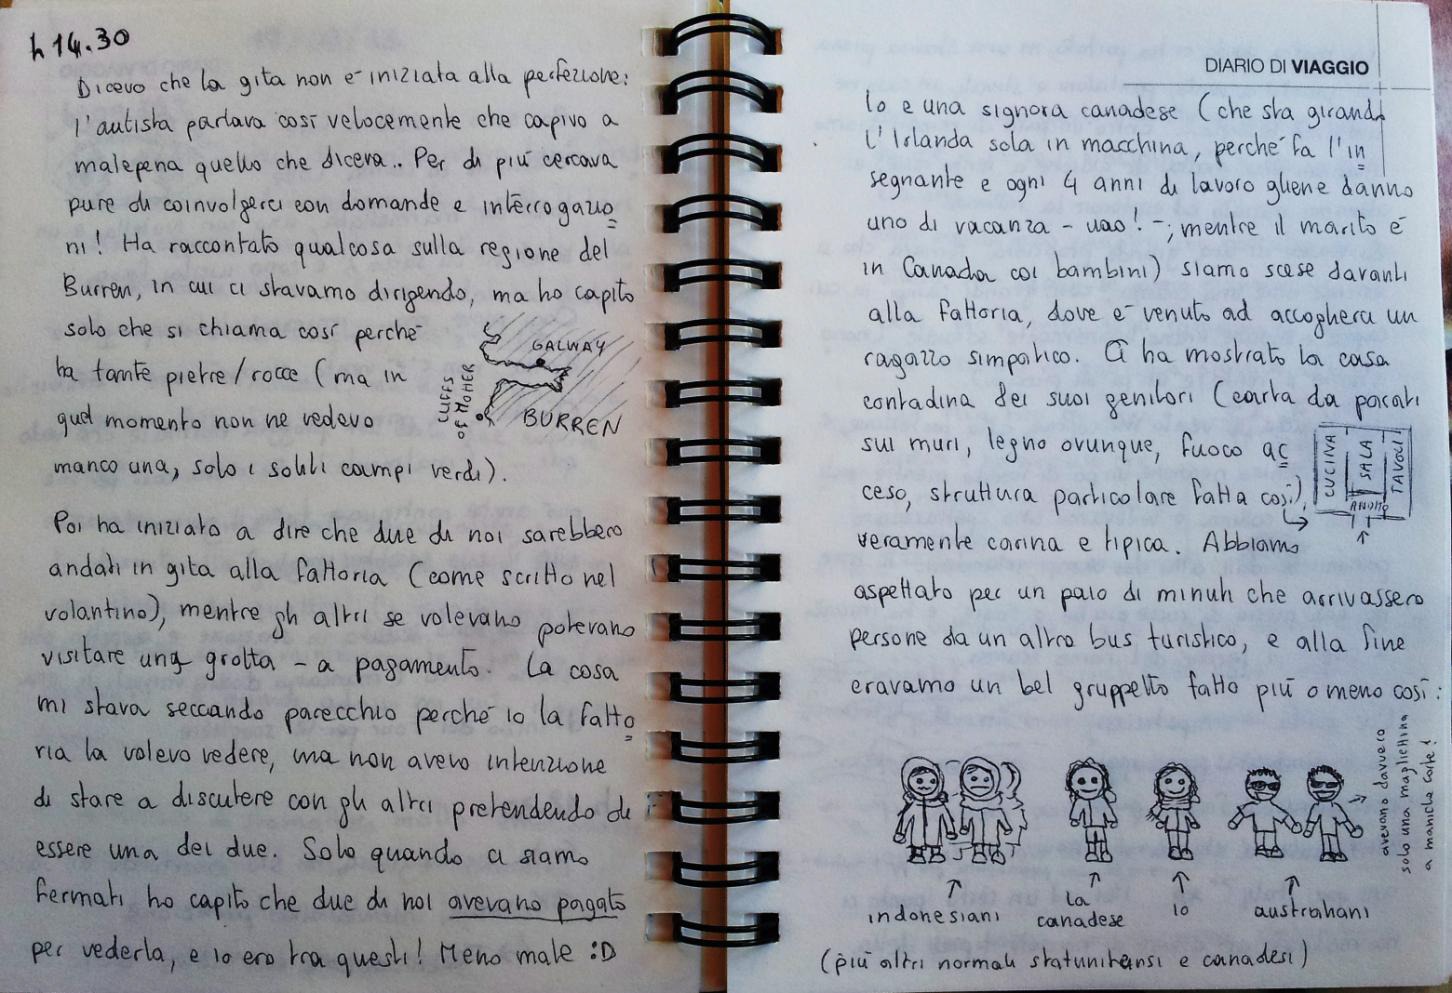 h 14.30
Dicevo che la gita non è iniziata alla perfezione:
l'autista parlava così velocemente che capivo a
malepena quello che diceva.. Per di più cercava
pure di coinvolgerci con domande e interrogazio
ni! Ha raccontato qualcosa sulla regione del
Burren, in cui ci stavamo dirigendo, ma ho capito
solo che si chiama così perché
ha tante pietre/rocce (ma in
quel momento non ne vedevo
manco una, solo i soliti campi verdi).
GALWAY
CLIFFS
OF MOHER
BURREN
Poi ha iniziato a dire che due di noi sarebbero
andati in gita alla fattoria (come scritto nel
volantino), mentre gli altri se volevano potevano
visitare una grotta - a pagamento. La cosa
mi stava seccando parecchio perché io la fatto
ria la volevo vedere, ma non avevo intenzione
di stare a discutere con gli altri pretendendo di
essere una dei due. Solo quando ci siamo
fermati ho capito che due di noi avevano pagato
per vederla, e io ero tra questi! Meno male :D
DIARIO DI VIAGGIO
Io e una signora canadese (che sta girando
l'Irlanda sola in macchina, perché fa l'in
segnante e ogni 4 anni di lavoro gliene danno
uno di vacanza - uao! -; mentre il marito è
in Canada coi bambini) siamo scese davanti
alla fattoria, dove è venuto ad accoglierci un
ragazzo simpatico. Ci ha mostrato la casa
contadina dei suoi genitori (carta da parati
sui muri, legno ovunque, fuoco ac
ceso, struttura particolare fatta così),
veramente carina e tipica. Abbiamo
CUCINA
SALA
TAVOLI
aspettato per un paio di minuti che arrivassero
persone da un altro bus turistico, e alla fine
eravamo un bel gruppetto fatto più o meno così:
avevano davvero
solo una magliettina
a maniche corte!
indonesiani
la
canadese
io
australiani
(più altri normali statunitensi e canadesi)